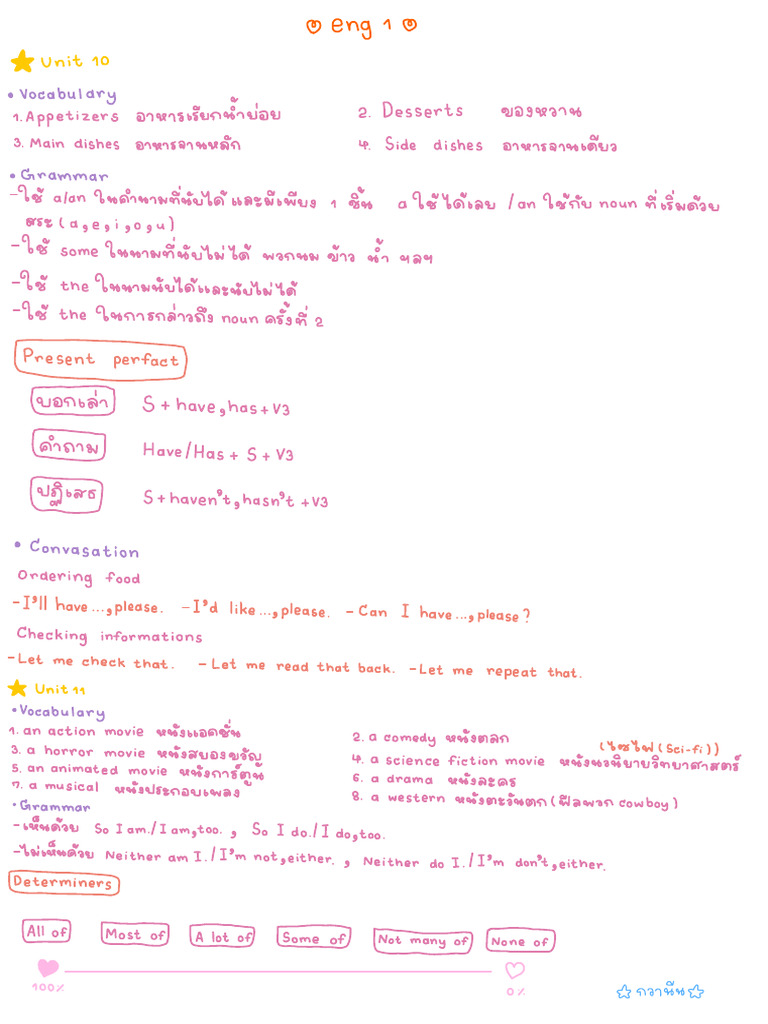 eng 1
Unit 10
• Vocabulary
1. Appetizers อาหารเรียกน้ำย่อย 2. Desserts ของหวาน
3. Main dishes อาหารจานหลัก 4. Side dishes อาหารจานเดียว
• Grammar
-ใช้ a/an ในคำนามที่นับได้ และมีเพียง 1 ชิ้น a ใช้ได้เลย / an ใช้กับ noun ที่เริ่มด้วย
สระ ( a, e, i, o, u )
-ใช้ some ในนามที่นับไม่ได้ พวกนม ข้าว น้ำ ฯลฯ
-ใช้ the ในนามนับได้และนับไม่ได้
-ใช้ the ในการกล่าวถึง noun ครั้งที่ 2
Present perfact
บอกเล่า S + have, has + V3
คำถาม Have/Has + S + V3
ปฏิเสธ S + haven't, hasn't + V3
• Convasation
Ordering food
-I'll have ..., please. -I'd like ..., please. - Can I have ..., please?
Checking informations
-Let me check that. - Let me read that back. -Let me repeat that.
Unit 11
• Vocabulary
1. an action movie หนังแอคชั่น 2. a comedy หนังตลก
(ไซไฟ (Sci-fi))
3. a horror movie หนังสยองขวัญ 4. a science fiction movie หนังนวนิยายวิทยาศาสตร์
5. an animated movie หนังการ์ตูน 6. a drama หนังละคร
7. a musical หนังประกอบเพลง 8. a western หนังตะวันตก (ฟีลพวก cowboy)
• Grammar
-เห็นด้วย So I am./I am,too. , So I do./I do,too.
-ไม่เห็นด้วย Neither am I./I'm not,either. , Neither do I./I'm don't,either.
Determiners
All of Most of A lot of Some of Not many of None of
100% 0%
กวานีน